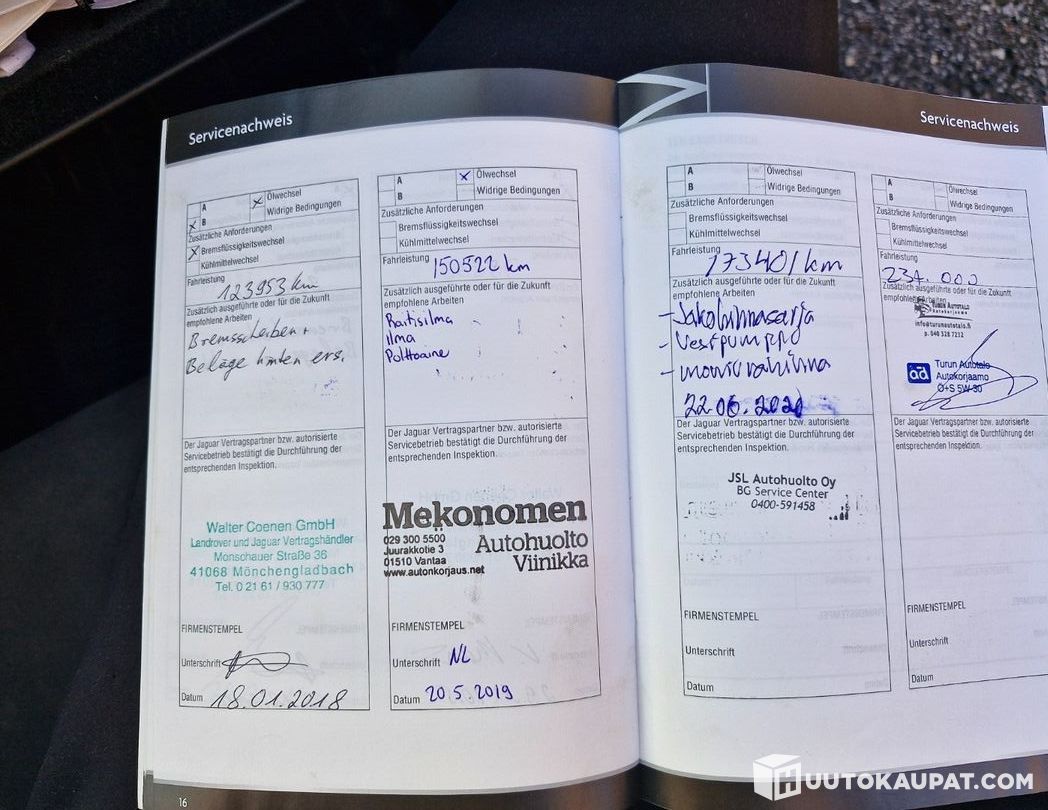 Servicenachweis
A
B
Ölwechsel
Widrige Bedingungen
Zusätzliche Anforderungen
Bremsflüssigkeitswechsel
Kühlmittelwechsel
Fahrleistung
123953 km
Zusätzlich ausgeführte oder für die Zukunft
empfohlene Arbeiten
Bremsscheiben +
Beläge hinten ers.
Der Jaguar Vertragspartner bzw. autorisierte
Servicebetrieb bestätigt die Durchführung der
entsprechenden Inspektion.
Walter Coenen GmbH
Landrover und Jaguar Vertragshändler
Monschauer Straße 36
41068 Mönchengladbach
Tel. 0 21 61 / 930 777
FIRMENSTEMPEL
Unterschrift
Datum 18.01.2018
16
A
B
Ölwechsel
Widrige Bedingungen
Zusätzliche Anforderungen
Bremsflüssigkeitswechsel
Kühlmittelwechsel
Fahrleistung 150522 km
Zusätzlich ausgeführte oder für die Zukunft
empfohlene Arbeiten
Raitisilma
ilma
Polttoaine
Der Jaguar Vertragspartner bzw. autorisierte
Servicebetrieb bestätigt die Durchführung der
entsprechenden Inspektion.
Mekonomen
029 300 5500
Juurakkotie 3
01510 Vantaa
www.autonkorjaus.net
Autohuolto
Viinikka
FIRMENSTEMPEL
Unterschrift NL
Datum 20.5.2019
Servicenachweis
A
B
Ölwechsel
Widrige Bedingungen
Zusätzliche Anforderungen
Bremsflüssigkeitswechsel
Kühlmittelwechsel
Fahrleistung
173401 km
Zusätzlich ausgeführte oder für die Zukunft
empfohlene Arbeiten
- Jakohihnasarja
- Vesipumppu
22.06.2021
Der Jaguar Vertragspartner bzw. autorisierte
Servicebetrieb bestätigt die Durchführung der
entsprechenden Inspektion.
JSL Autohuolto Oy
BG Service Center
0400-591458
FIRMENSTEMPEL
Unterschrift
Datum
A
B
Ölwechsel
Widrige Bedingungen
Zusätzliche Anforderungen
Bremsflüssigkeitswechsel
Kühlmittelwechsel
Fahrleistung
234.000
Zusätzlich ausgeführte oder für die Zukunft
empfohlene Arbeiten
Turun Autotalo
Autokorjaamo
info@turunautotalo.fi
p. 040 328 7212
ad
Turun Autotalo
Autokorjaamo
Ö+S 5W-30
Der Jaguar Vertragspartner bzw. autorisierte
Servicebetrieb bestätigt die Durchführung der
entsprechenden Inspektion.
FIRMENSTEMPEL
Unterschrift
Datum
HUUTOKAUPAT.COM